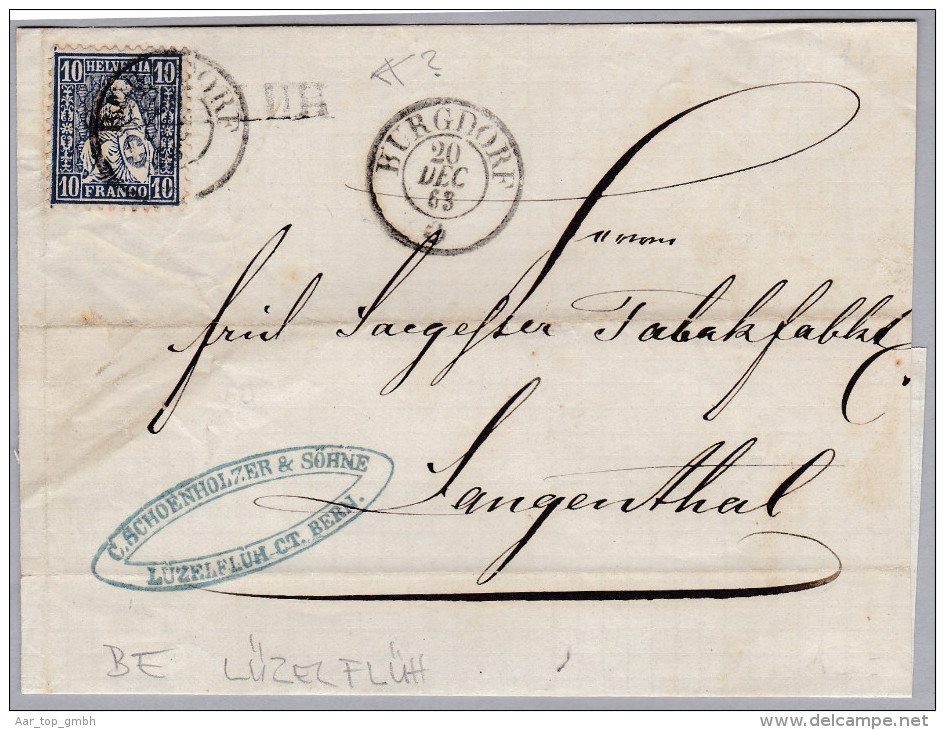 10 HELVETIA 10
10 FRANCO 10
BURGDORF
20
DEC
63
Herrn
Frid Saegesser Tabakfabkt
Langenthal
C. SCHOENHOLZER & SÖHNE
LÜZELFLÜH CT. BERN.
BE LÜZELFLÜH
Aar_top_gmbh
delcampe.net